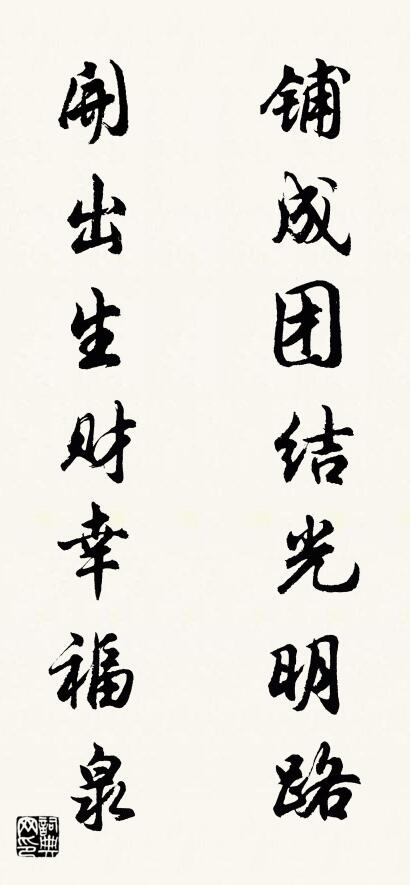 铺成团结光明路
開出生财幸福泉
詞典網印